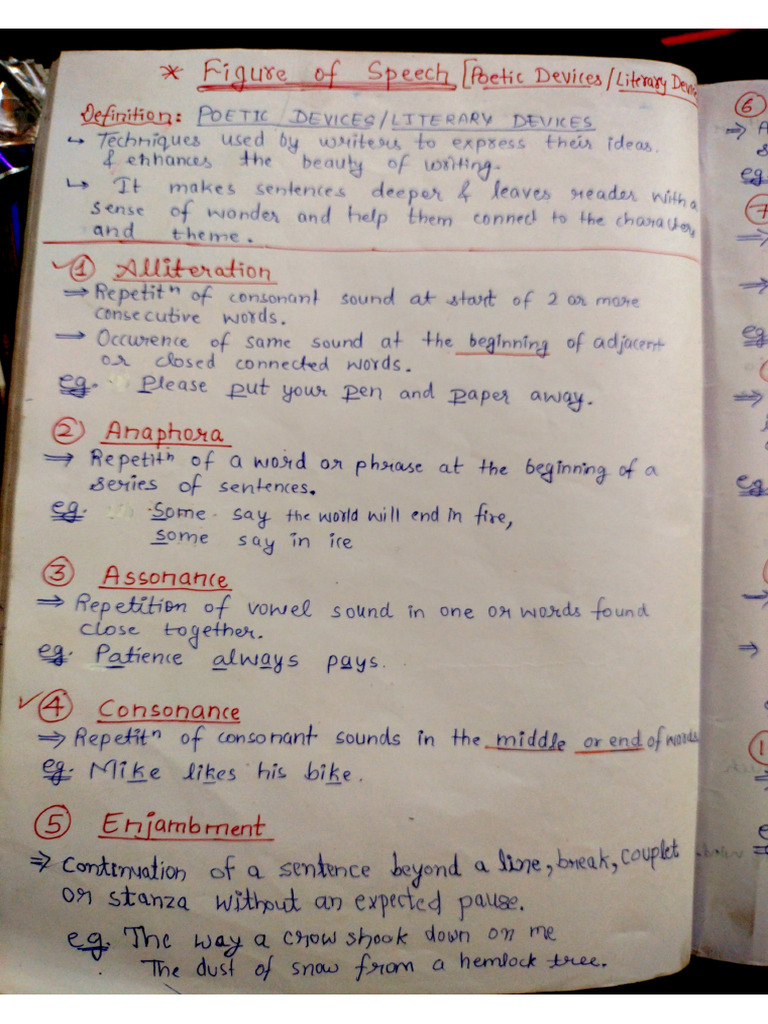 * Figure of Speech [Poetic Devices/Literary Devic
Definition: POETIC DEVICES/LITERARY DEVICES
↳ Techniques used by writers to express their ideas.
& enhances the beauty of writing.
↳ It makes sentences deeper & leaves reader with a
sense of wonder and help them connect to the characters
and theme.
✓① Alliteration
⇒ Repetitⁿ of consonant sound at start of 2 or more
consecutive words.
→ Occurence of same sound at the beginning of adjacent
or closed connected words.
eg. Please put your pen and paper away.
② Anaphora
⇒ Repetitⁿ of a word or phrase at the beginning of a
series of sentences.
eg. Some say the world will end in fire,
Some say in ice
③ Assonance
⇒ Repetition of vowel sound in one or words found
close together.
eg. Patience always pays.
✓④ Consonance
⇒ Repetitⁿ of consonant sounds in the middle or end of words
eg. Mike likes his bike.
⑤ Enjambment
⇒ Continuation of a sentence beyond a line, break, couplet
or stanza without an expected pause.
eg. The way a crow shook down on me
The dust of snow from a hemlock tree.
⑥
⇒ A
eg
eg
eg